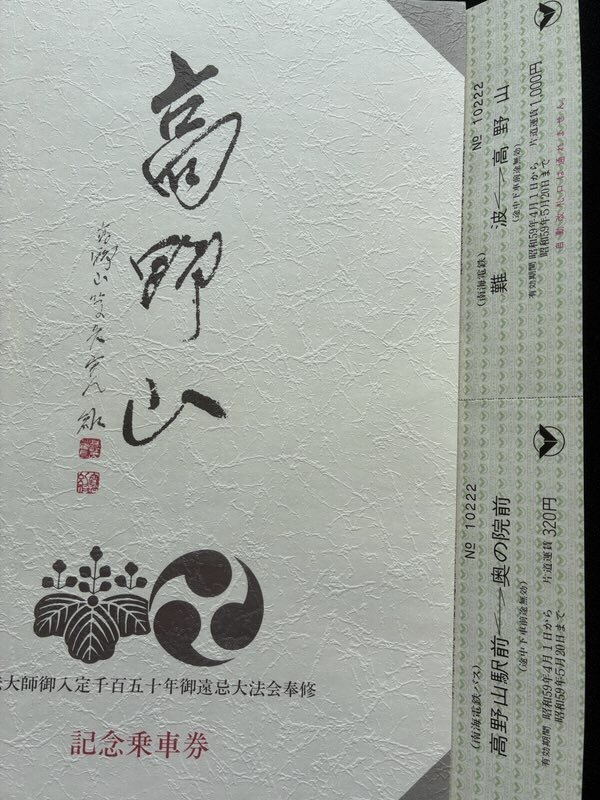 高野山
大師御入定千百五十年御遠忌大法会奉修
記念乗車券
№ 10222
(南海電鉄)
難 波――高 野 山
(途中下車前途無効)
有効期間 昭和59年4月1日から
昭和59年5月20日まで
片道運賃 1,000円
自動改札口は通れません
№ 10222
(南海電鉄バス)
高野山駅前――奥の院前
(途中下車前途無効)
有効期間 昭和59年4月1日から
昭和59年5月20日まで
片道運賃 320円